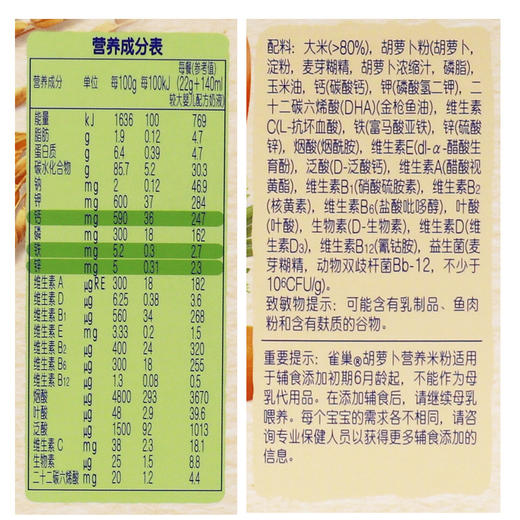 营养成分表
每餐(参考值)
营养成分 单位 每100g 每100kJ (22g+140ml
较大婴儿配方奶液)
能量 kJ 1636 100 769
脂肪 g 1.9 0.12 4.7
蛋白质 g 6.4 0.39 4.7
碳水化合物 g 85.7 5.2 30.3
钠 mg 2 0.12 46.9
钾 mg 600 37 284
钙 mg 590 36 247
磷 mg 300 18 162
铁 mg 5.2 0.3 2.7
锌 mg 5 0.31 2.3
维生素 A μg RE 300 18 182
维生素 D μg 6.25 0.38 3.6
维生素 B1 μg 560 34 268
维生素 E mg 3.33 0.2 1.5
维生素 B2 μg 400 24 320
维生素 B6 μg 300 18 155
维生素 B12 μg 1.3 0.08 0.5
烟酸 μg 4800 293 3670
叶酸 μg 48 2.9 39.6
泛酸 μg 1500 92 1013
维生素 C mg 38 2.3 18.1
生物素 μg 25 1.5 8.8
二十二碳六烯酸 mg 20 1.2 4.4
配料：大米(>80%), 胡萝卜粉(胡萝卜,
淀粉, 麦芽糊精, 胡萝卜浓缩汁, 磷脂),
玉米油, 钙(碳酸钙), 钾(磷酸氢二钾), 二
十二碳六烯酸(DHA)(金枪鱼油), 维生素
C(L-抗坏血酸), 铁(富马酸亚铁), 锌(硫酸
锌), 烟酸(烟酰胺), 维生素E(dl-α-醋酸生
育酚), 泛酸(D-泛酸钙), 维生素A(醋酸视
黄酯), 维生素B1(硝酸硫胺素), 维生素B2
(核黄素), 维生素B6(盐酸吡哆醇), 叶酸
(叶酸), 生物素(D-生物素), 维生素D(维
生素D3), 维生素B12(氰钴胺), 益生菌(麦
芽糊精, 动物双歧杆菌Bb-12, 不少于
10⁶CFU/g)。
致敏物提示：可能含有乳制品、鱼肉
粉和含有麸质的谷物。
重要提示：雀巢®胡萝卜营养米粉适用
于辅食添加初期6月龄起, 不能作为母
乳代用品。在添加辅食后, 请继续母乳
喂养。每个宝宝的需求各不相同, 请咨
询专业保健人员以获得更多辅食添加的
信息。